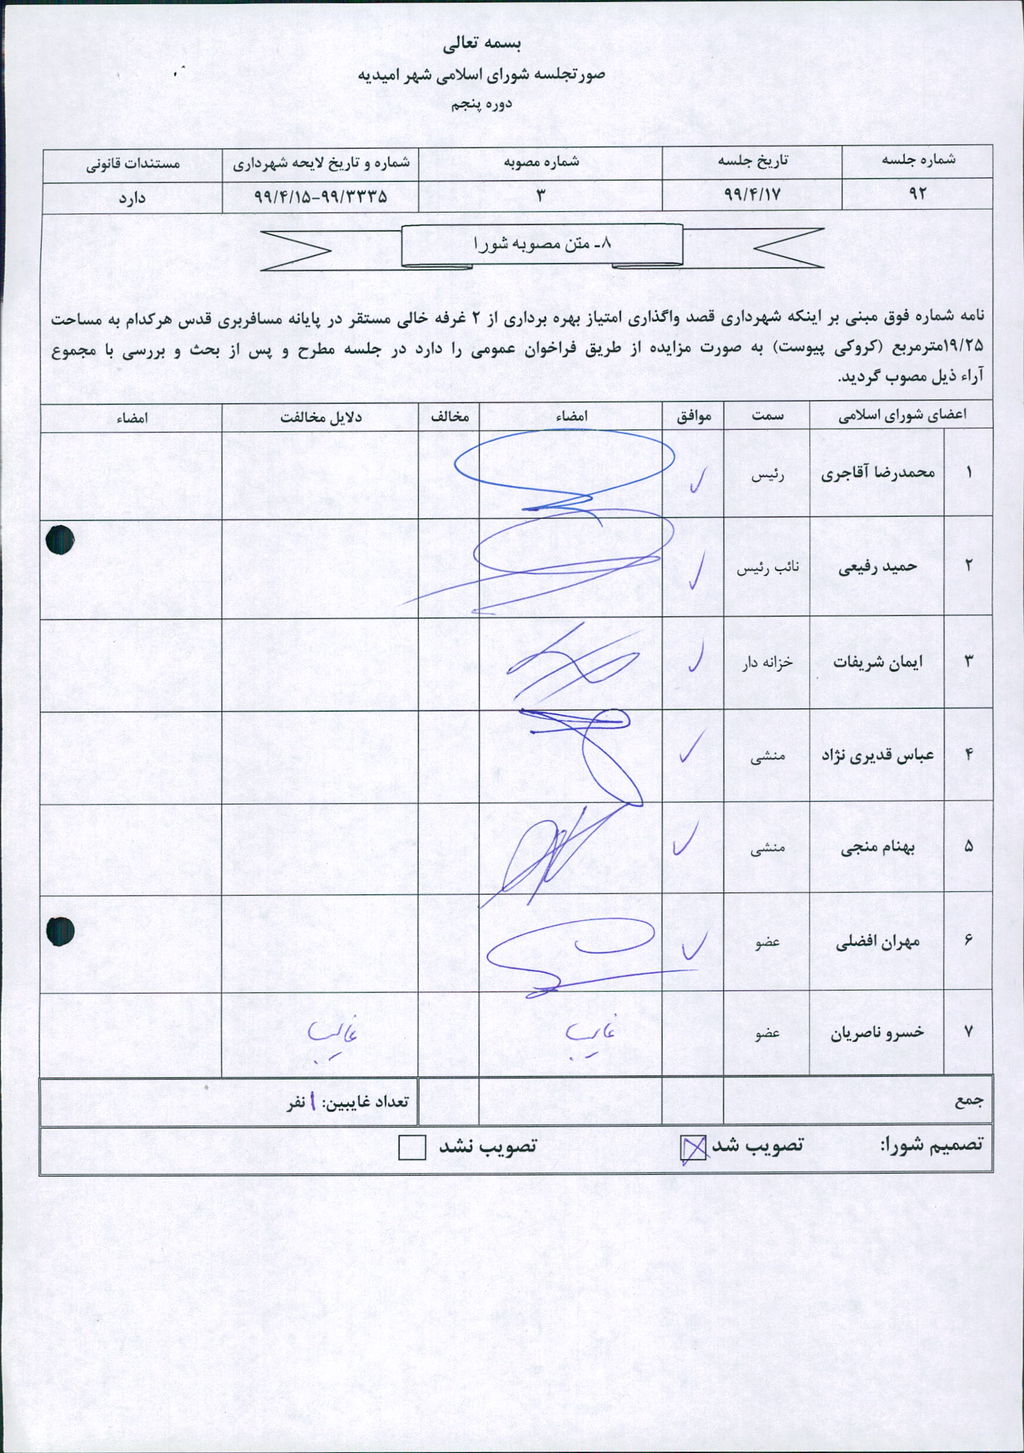 بسمه تعالی
صورتجلسه شورای اسلامی شهر امیدیه
دوره پنجم
شماره جلسه تاریخ جلسه شماره مصوبه شماره و تاریخ لایحه شهرداری مستندات قانونی
۹۲ ۹۹/۴/۱۷ ۳ ۹۹/۳۳۳۵-۹۹/۴/۱۵ دارد
۸- متن مصوبه شورا
نامه شماره فوق مبنی بر اینکه شهرداری قصد واگذاری امتیاز بهره برداری از ۲ غرفه خالی مستقر در پایانه مسافربری قدس هرکدام به مساحت
۱۹/۲۵مترمربع (کروکی پیوست) به صورت مزایده از طریق فراخوان عمومی را دارد در جلسه مطرح و پس از بحث و بررسی با مجموع
آراء ذیل مصوب گردید.
اعضای شورای اسلامی سمت موافق امضاء مخالف دلایل مخالفت امضاء
۱ محمدرضا آقاجری رئیس ✓
۲ حمید رفیعی نائب رئیس ✓
۳ ایمان شریفات خزانه دار ✓
۴ عباس قدیری نژاد منشی ✓
۵ بهنام منجی منشی ✓
۶ مهران افضلی عضو ✓
۷ خسرو ناصریان عضو غایب غایب
جمع تعداد غایبین: ۱ نفر
تصمیم شورا: تصویب شد ☒ تصویب نشد ☐